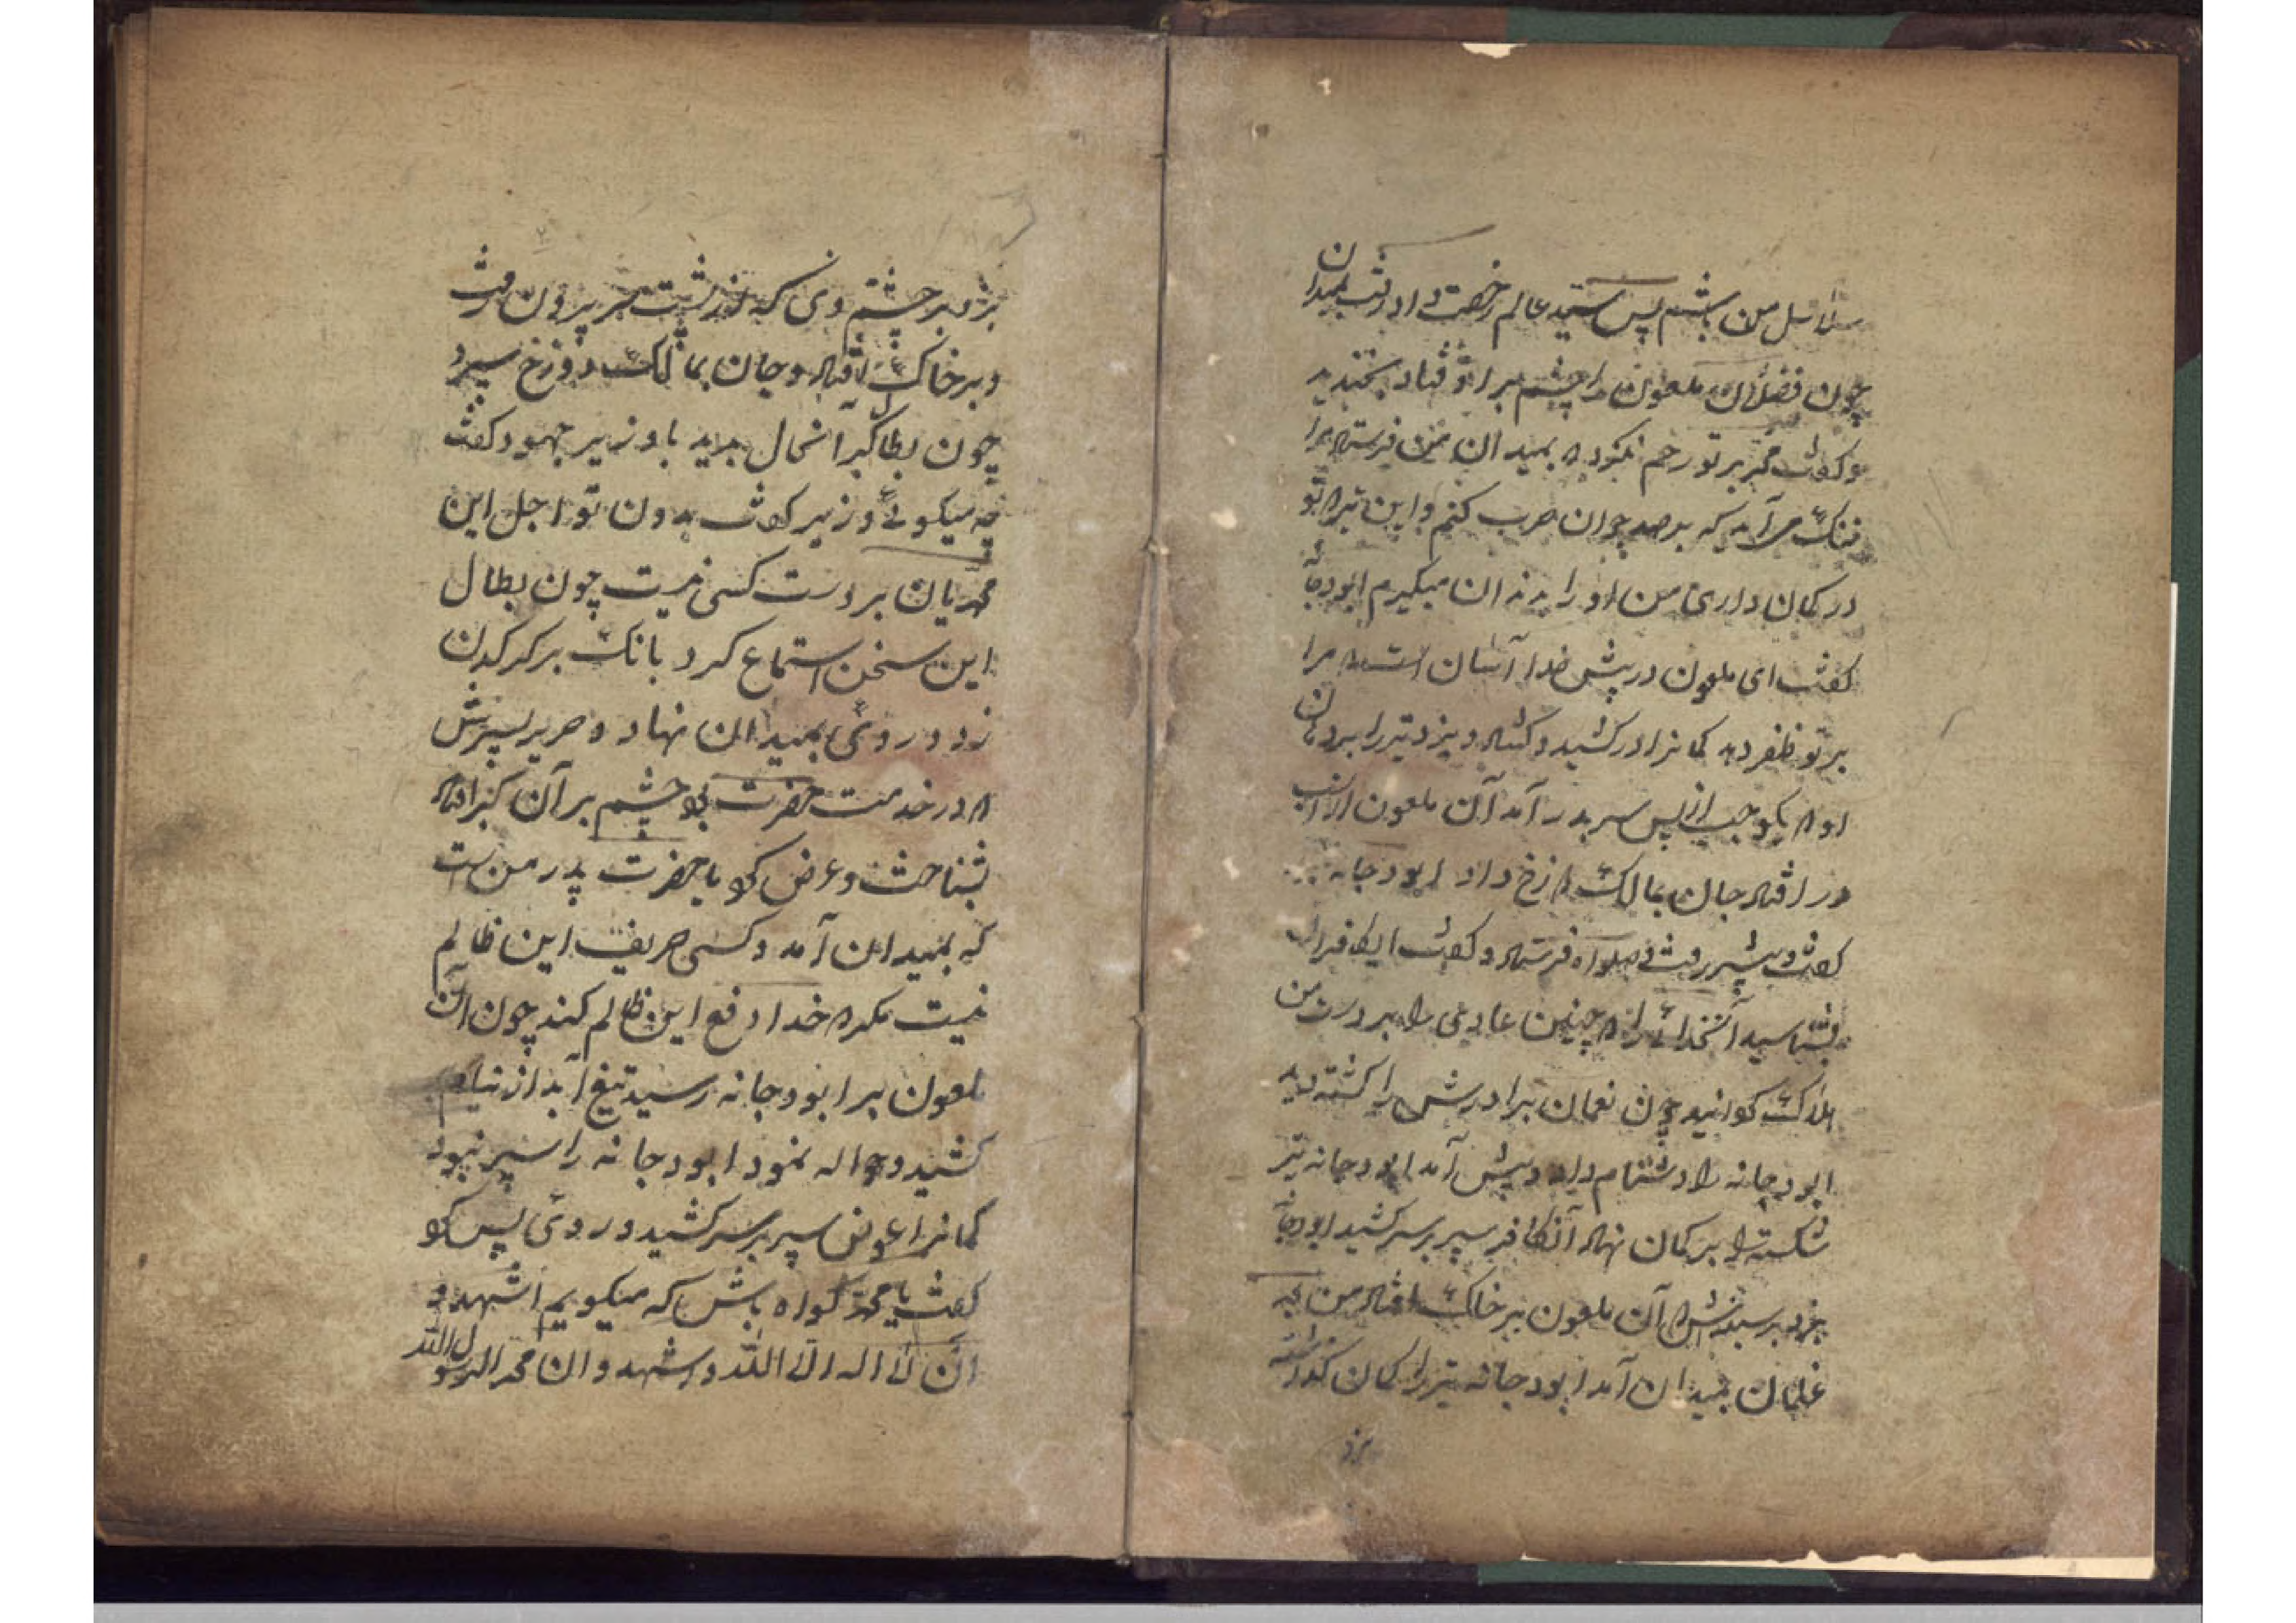 من باشم پس سید عالم رخصت داد رفت بمیدان
چون فضلان ملعون را چشم بر او فتاد بخندید
و کفت مکر بر تو رحم نکرده بمیدان من فرستاد مرا
ننک می آید که بر صد چوان حرب کنم و این تیر تو
در کمان داری من او را بدندان میکیرم ابودجانه
کفت ای ملعون در پیش خدا آسان است مرا
بر تو ظفر دهد کمانرا در کشید و کشاد و بزد تیر را بر دهان
او یکوجب از پس سر بدر آمد آن ملعون از اسب
در افتاد جان بمالک دوزخ داد ابودجانه
کفت و پیشتر رفت صلوات فرستاد و کفت ای کافران
بشناسید آنخدائی را چنین عادی را بر دست من
هلاک کردانید چون نعمان برادرش را کشته دید
ابودجانه را دشنام داد و پیش آمد ابودجانه تیر
شکسته را بر کمان نهاد آنکافر سپر بر سر کشید ابودجانه
بزد بر سینه اش آن ملعون بر خاک افتاد من بعد
غلمان بمیدان آمد ابودجانه تیر را کمان کذاشته
بزد
بزد بر چشم وی که از پشت سر بیرون رفت
و بر خاک افتاد و جان بمالک دوزخ سپرد
چون بطال کبر آنحال بدید با وزیر جهود کفت
چه میکوئی وزیر کفت بدون تو اجل این
محمدیان بر دست کسی نیست چون بطال
این سخن استماع کرد بانک بر کرکدن
زد و روی بمیدان نهاد و حریر پسرش
در خدمت حضرت بود چشم بر آن کبر افتاد
بشناخت و عرض کرد یا حضرت پدر من است
که بمیدان آمد و کسی حریف این ظالم
نیست مکر خدا دفع این ظالم کند چون آن
ملعون برابر ابودجانه رسید تیغ آبدار از نیام
کشید و حواله نمود ابودجانه را سپر نبود
کمانرا عوض سپر بر سر کشید و روی پس کرد
کفت یا محمد کواه باش که میکویم اشهد و
ان لا اله الا الله و اشهد و ان محمد الرسول الله